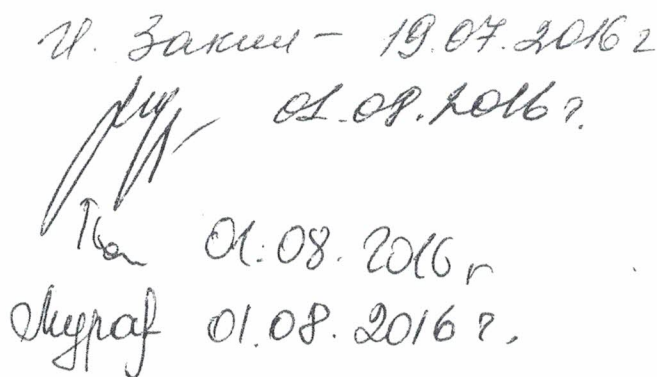 И. Закии - 19.07.2016 г
01.08.2016 г.
01.08.2016 г
Мураф 01.08.2016 г.